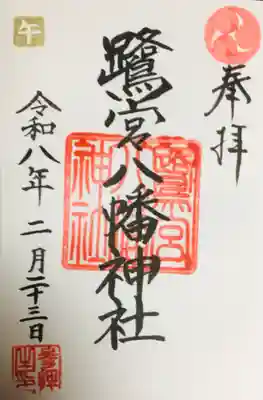 奉拝
鷺宮八幡神社
令和八年二月二十三日
午
鷺宮八幡神社